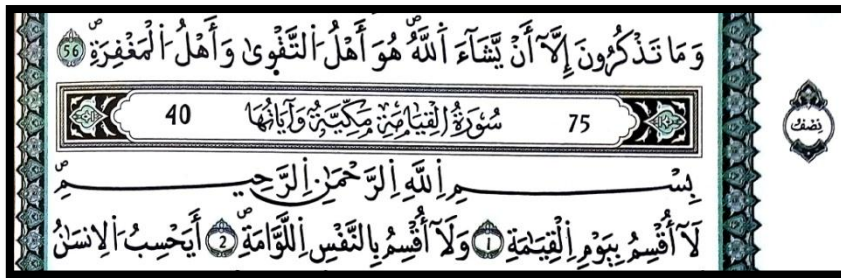 وَمَا تَذْكُرُونَ إِلَّآ أَنْ يَّشَآءَ اَ۬للَّهُۖ هُوَ أَهْلُ اُ۬لتَّقْوٜىٰ وَأَهْلُ اُ۬لْمَغْفِرَةِۖ 56
75 سُورَةُ الْقِيَامَةِ مَكِّيَّةٌ وَآيَاتُهَا 40
نِصْف
بِسْمِ اِ۬للَّهِ اِ۬لرَّحْمَٰنِ اِ۬لرَّحِيمِۖ
لَآ أُقْسِمُ بِيَوْمِ اِ۬لْقِيَٰمَةِ 1 وَلَآ أُقْسِمُ بِالنَّفْسِ اِ۬للَّوَّامَةِۖ 2 أَيَحْسِبُ اُ۬لِانسَٰنُ